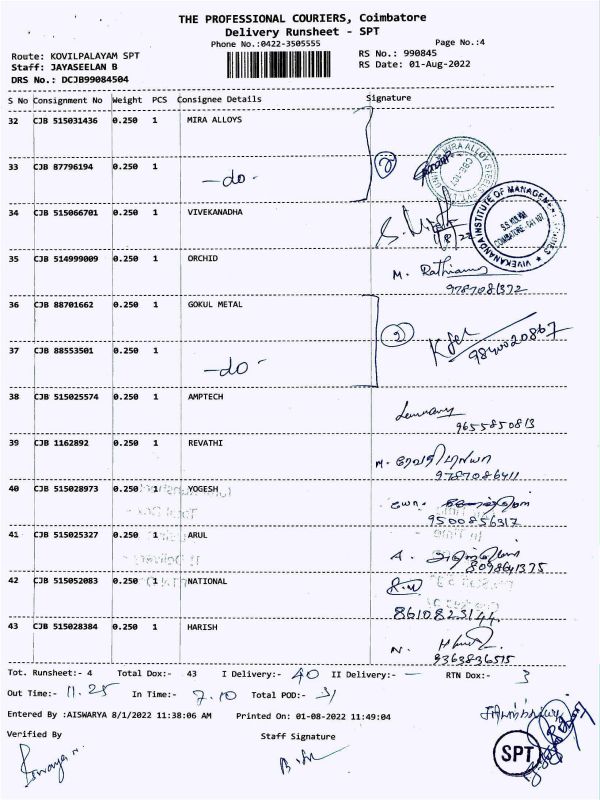 THE PROFESSIONAL COURIERS, Coimbatore
Delivery Runsheet - SPT
Phone No.:0422-3505555
Page No.:4
Route: KOVILPALAYAM SPT
RS No.: 990845
Staff: JAYASEELAN B
RS Date: 01-Aug-2022
DRS No.: DCJB99084504
S No Consignment No Weight PCS Consignee Details Signature
32 CJB 515031436 0.250 1 MIRA ALLOYS
2
33 CJB 87796194 0.250 1
-do-
34 CJB 515066701 0.250 1 VIVEKANADHA
VIVEKANANDA INSTITUTE OF MANAGEMENT
35 CJB 514999009 0.250 1 ORCHID
M.
9787081372
36 CJB 88701662 0.250 1 GOKUL METAL
2
9840020867
37 CJB 88553501 0.250 1
-do-
38 CJB 515025574 0.250 1 AMPTECH
9655850813
39 CJB 1162892 0.250 1 REVATHI
M.
9787086411
40 CJB 515028973 0.250 1 YOGESH
9500856317
41 CJB 515025327 0.250 1 ARUL
A.
8098641375
42 CJB 515052083 0.250 1 NATIONAL
8610823144
43 CJB 515028384 0.250 1 HARISH
N.
9363836515
Tot. Runsheet:- 4 Total Dox:- 43 I Delivery:- 40 II Delivery:- — RTN Dox:- 3
Out Time:- 11.25 In Time:- 7.10 Total POD:- 31
Entered By :AISWARYA 8/1/2022 11:38:06 AM Printed On: 01-08-2022 11:49:04
Verified By Staff Signature
SPT